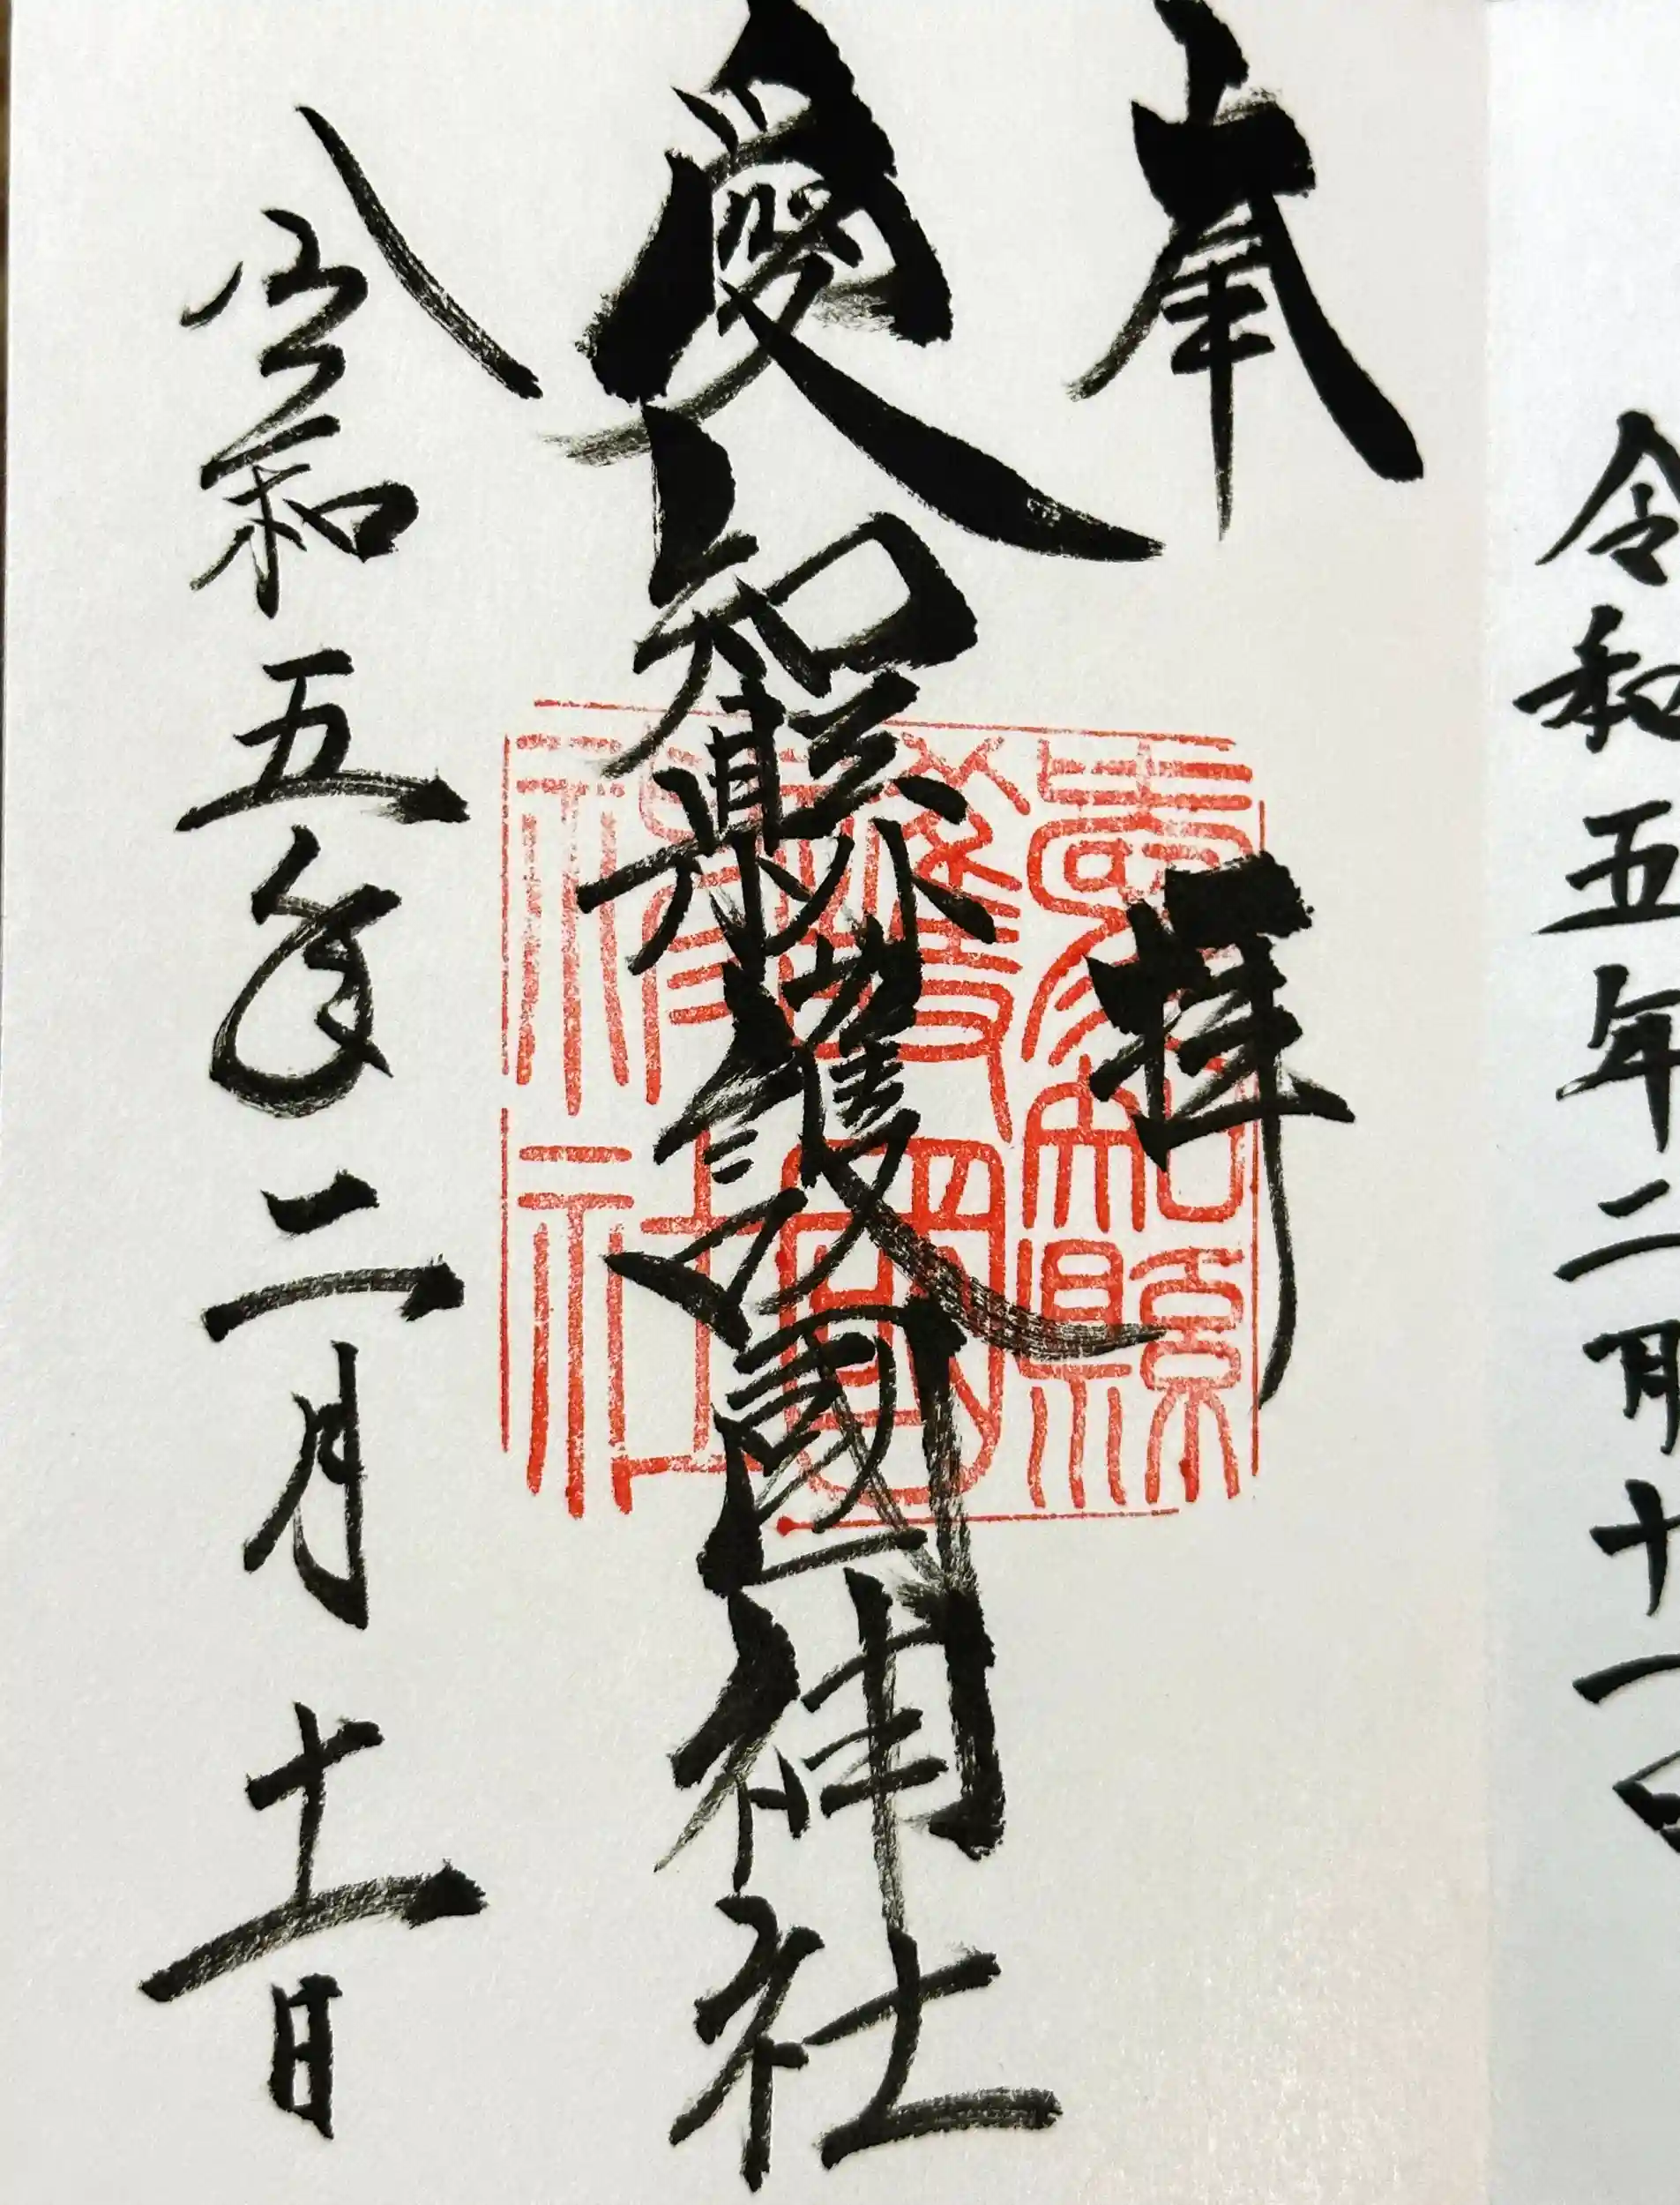 令和五年二月十一
奉拝
愛知縣護國神社
愛知縣
護國
神社
令和五年二月十一日